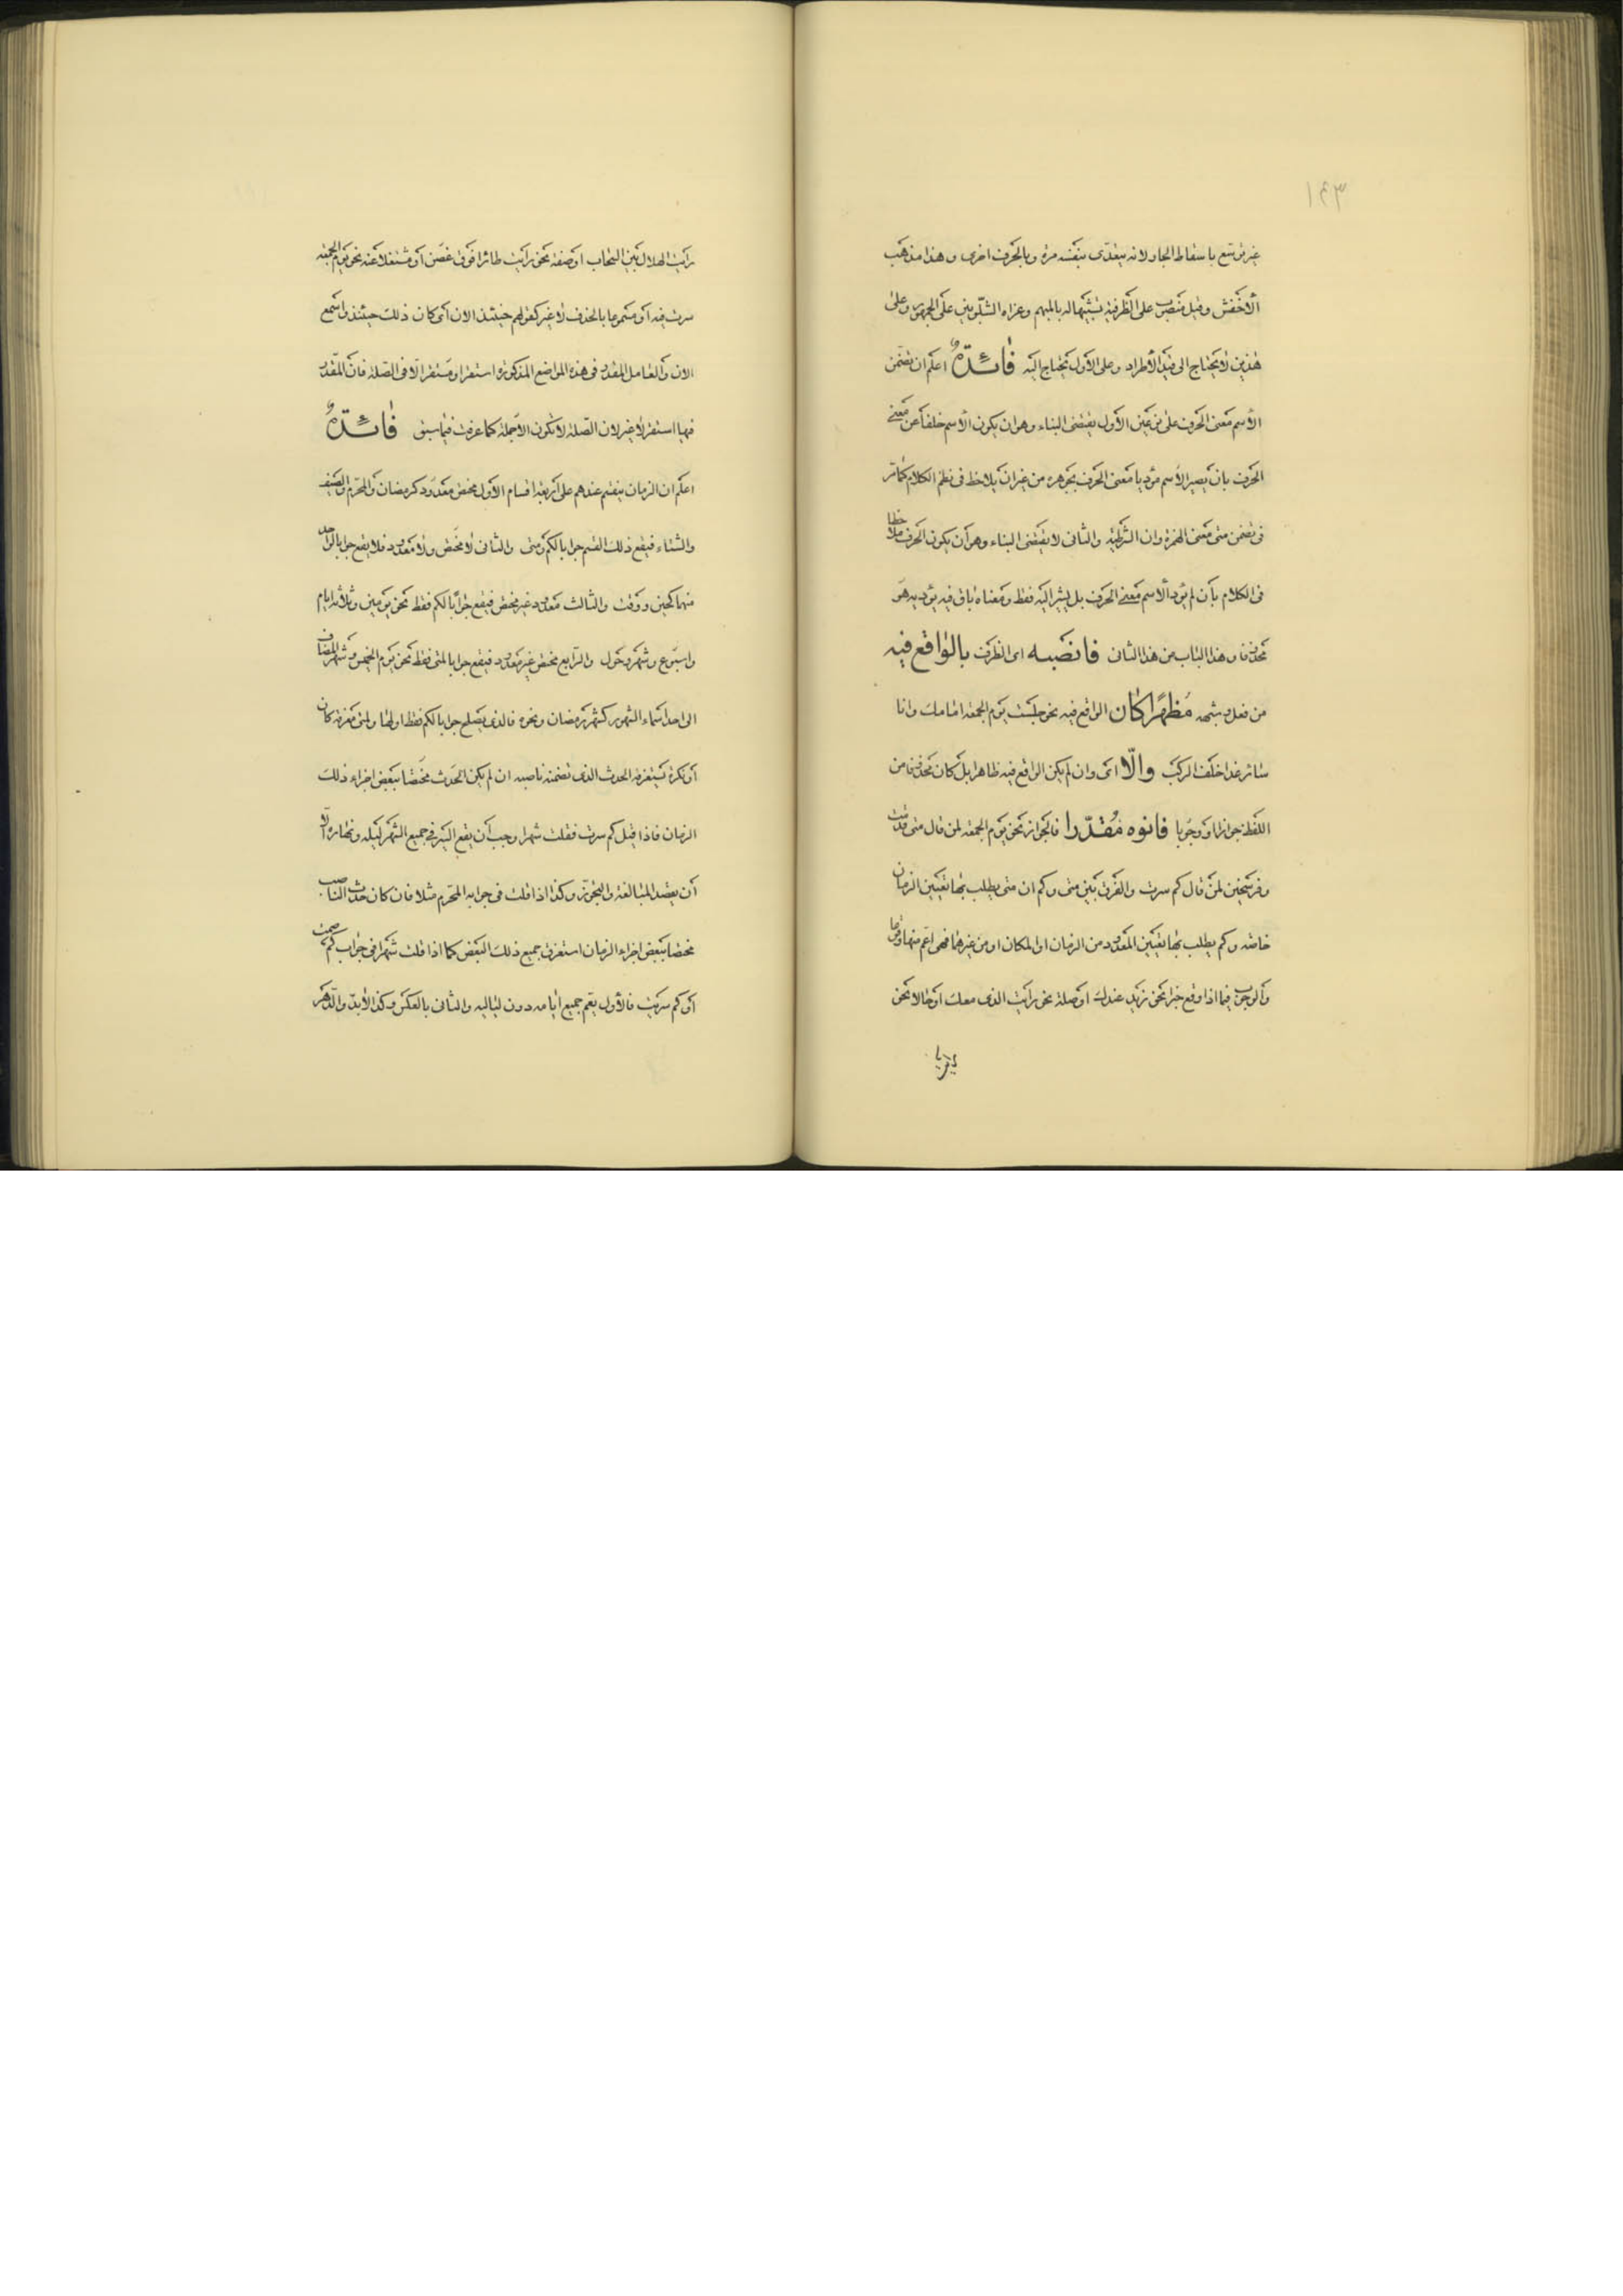 ١٤٣
غير توسّع باسقاط الجار ولانه يتعدّى بنفسه مرة وبالحرف اخرى وهذا مذهب
الأخفش وقيل منصوب على الظرفية تشبيها له بالمبهم وعزاه الشلوبين على الجمهور وعلى
هذين لا يحتاج الى قيد الاطراد وعلى الاول يحتاج اليه فائدة اعلم ان تضمّن
الأسم معنى الحرف على نوعين الأول يقتضى البناء وهو ان يكون الأسم خلفا عن معنى
الحرف بان يصير الأسم مؤديا معنى الحرف بجوهره من غير ان يلاحظ فى نظم الكلام كما مر
فى تضمن متى معنى الهمزة وان الشرطية والثانى لا يقتضى البناء وهو أن يكون الحرف ملاحظا
فى الكلام بأن لم يؤد الأسم معنى الحرف بل يشير اليه فقط ومعناه باق فيه يؤديه هو
محذوفا وهذا الباب من هذا الثانى فانصبه اى الظرف بالواقع فيه
من فعل وشبهه مظهرا كان الواقع فيه نحو جلست يوم الجمعة امامك وانا
سائر غدا خلف الركب والّا اى وان لم يكن الواقع فيه ظاهرا بل كان محذوفا من
اللفظ جوازا او وجوبا فانوه مقدّرا فالجواز نحو يوم الجمعة لمن قال متى قدمت
وفرسخين لمن قال كم سرت والفرق بين متى وكم ان متى يطلب بها تعيين الزمان
خاصة وكم يطلب بها تعيين المعدود من الزمان او المكان او من غيرهما فهى اعم منها وقوعا
والوجوب فيما اذا وقع خبرا نحو زيد عندك او صلة نحو رأيت الذى معك او حالا نحو
رأيت الهلال بين السحاب او صفة نحو رأيت طائرا فوق غصن أو مشتغلا عنه نحو يوم الجمعة
سرت فيه أو مسموعا بالحذف لا غير كقولهم حينئذ الان أى كان ذلك حينئذ واسمع
الان والعامل المقدر فى هذه المواضع المذكورة استقر او مستقر الا فى الصلة فان المقدر
فيها استقر لا غير لان الصلة لا تكون الا جملة كما عرفت فيما سبق فائدة
اعلم ان الزمان ينقسم عندهم على أربعة اقسام الأول مختص معدود كرمضان والمحرم والصيف
والشتاء فيقع ذلك القسم جوابا لكم ومتى والثانى لا مختص ولا معدود فلا يقع جوابا لواحد
منهما كحين ووقت والثالث معدود غير مختص فيقع جوابا لكم فقط نحو يومين وثلاثة ايام
واسبوع وشهر وحول والرابع مختص غير معدود فيقع جوابا لمتى فقط نحو يوم الخميس وشهر المضاف
الى احد أسماء الشهور كشهر رمضان ونحوه فالذى يصلح جوابا لكم فقط او لها ولمتى معرفة كان
أو نكرة يستغرقه الحدث الذى تضمنه ناصبه ان لم يكن الحدث مختصا ببعض اجزاء ذلك
الزمان فاذا قيل كم سرت فقلت شهرا وجب أن يقع السير فى جميع الشهر ليله ونهاره الا
أن يقصد المبالغة والتجوز وكذا اذا قلت فى جوابه المحرم مثلا فان كان حدث الناصب
مختصا ببعض اجزاء الزمان استغرق جميع ذلك البعض كما اذا قلت شهرا فى جواب كم صمت
أو كم سريت فالأول يعم جميع ايامه دون لياليه والثانى بالعكس وكذا الأبد والدهر